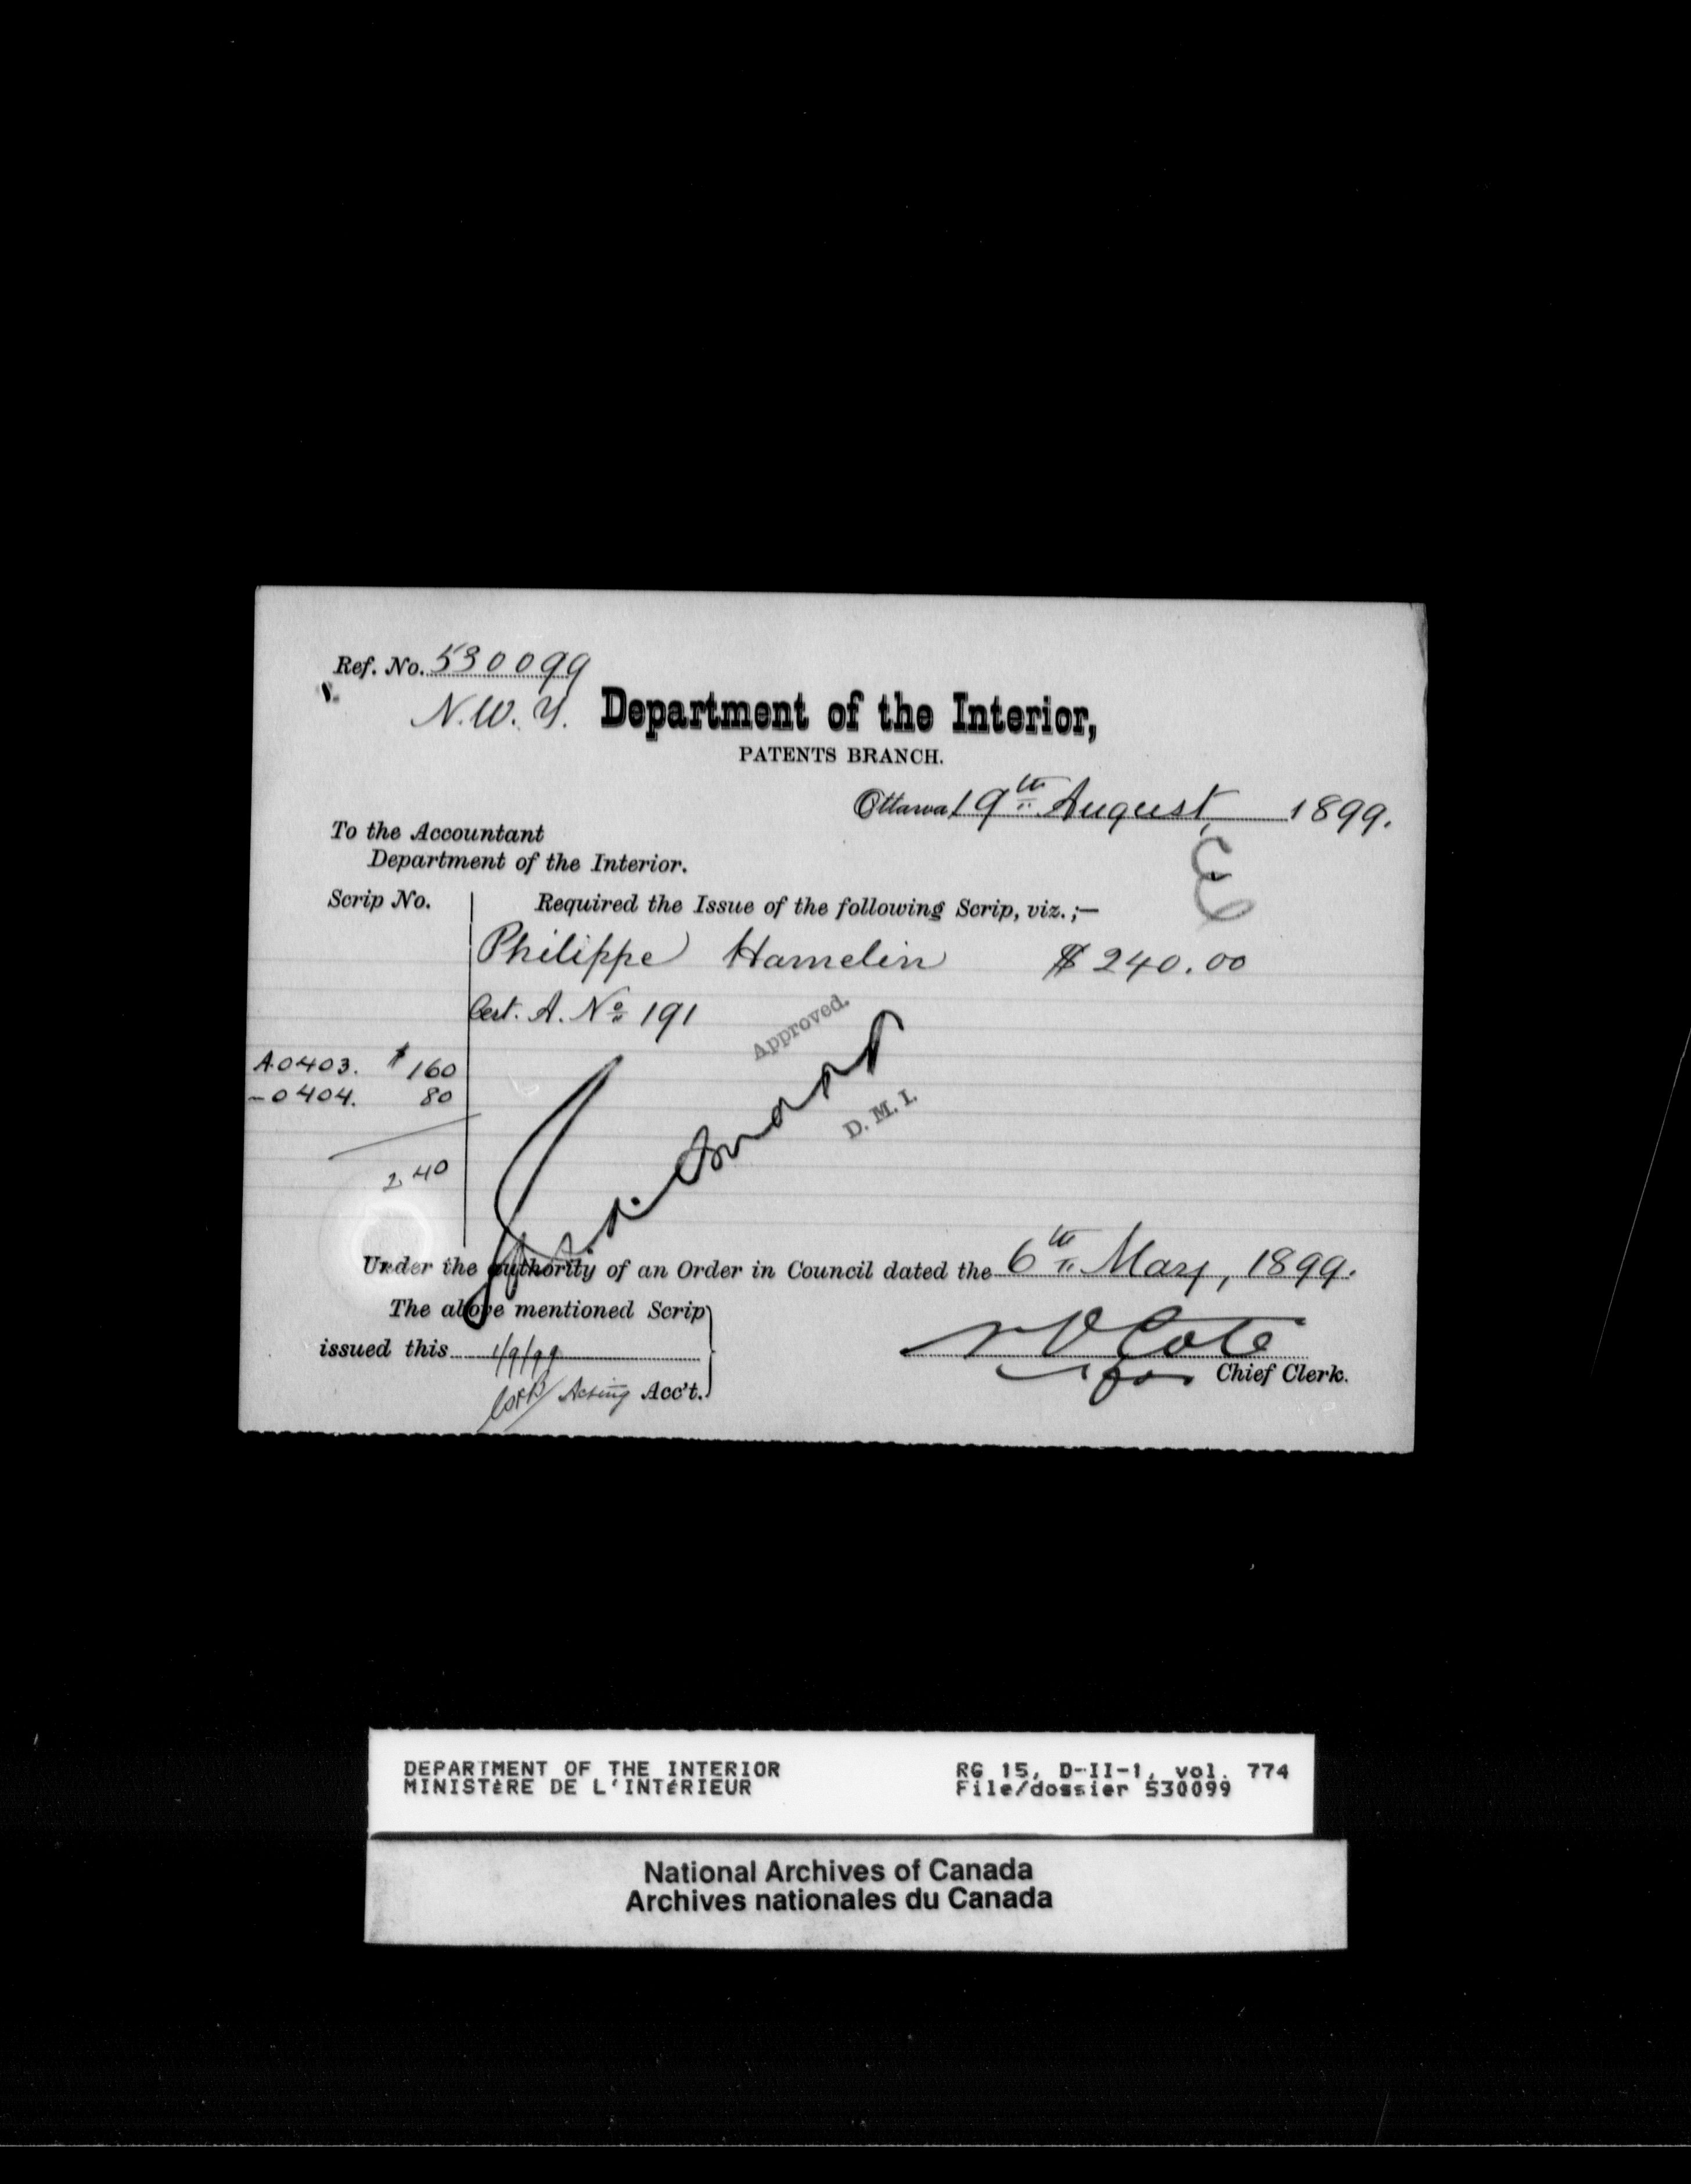 Ref. No. 530099
N.W.Y. Department of the Interior,
PATENTS BRANCH.
Ottawa 19th August, 1899.
To the Accountant
Department of the Interior.
Scrip No. Required the Issue of the following Scrip, viz. ;—
Philippe Hamelin $240.00
Cert. A. No 191
Approved.
A.0403. $160
-0404. 80
D. M. I.
240
Under the authority of an Order in Council dated the 6th May, 1899.
The above mentioned Scrip
issued this 1/9/99
N O Coté
for Chief Clerk.
Acting Acc't.
DEPARTMENT OF THE INTERIOR RG 15, D-II-1, vol. 774
MINISTÈRE DE L'INTÉRIEUR File/dossier 530099
National Archives of Canada
Archives nationales du Canada